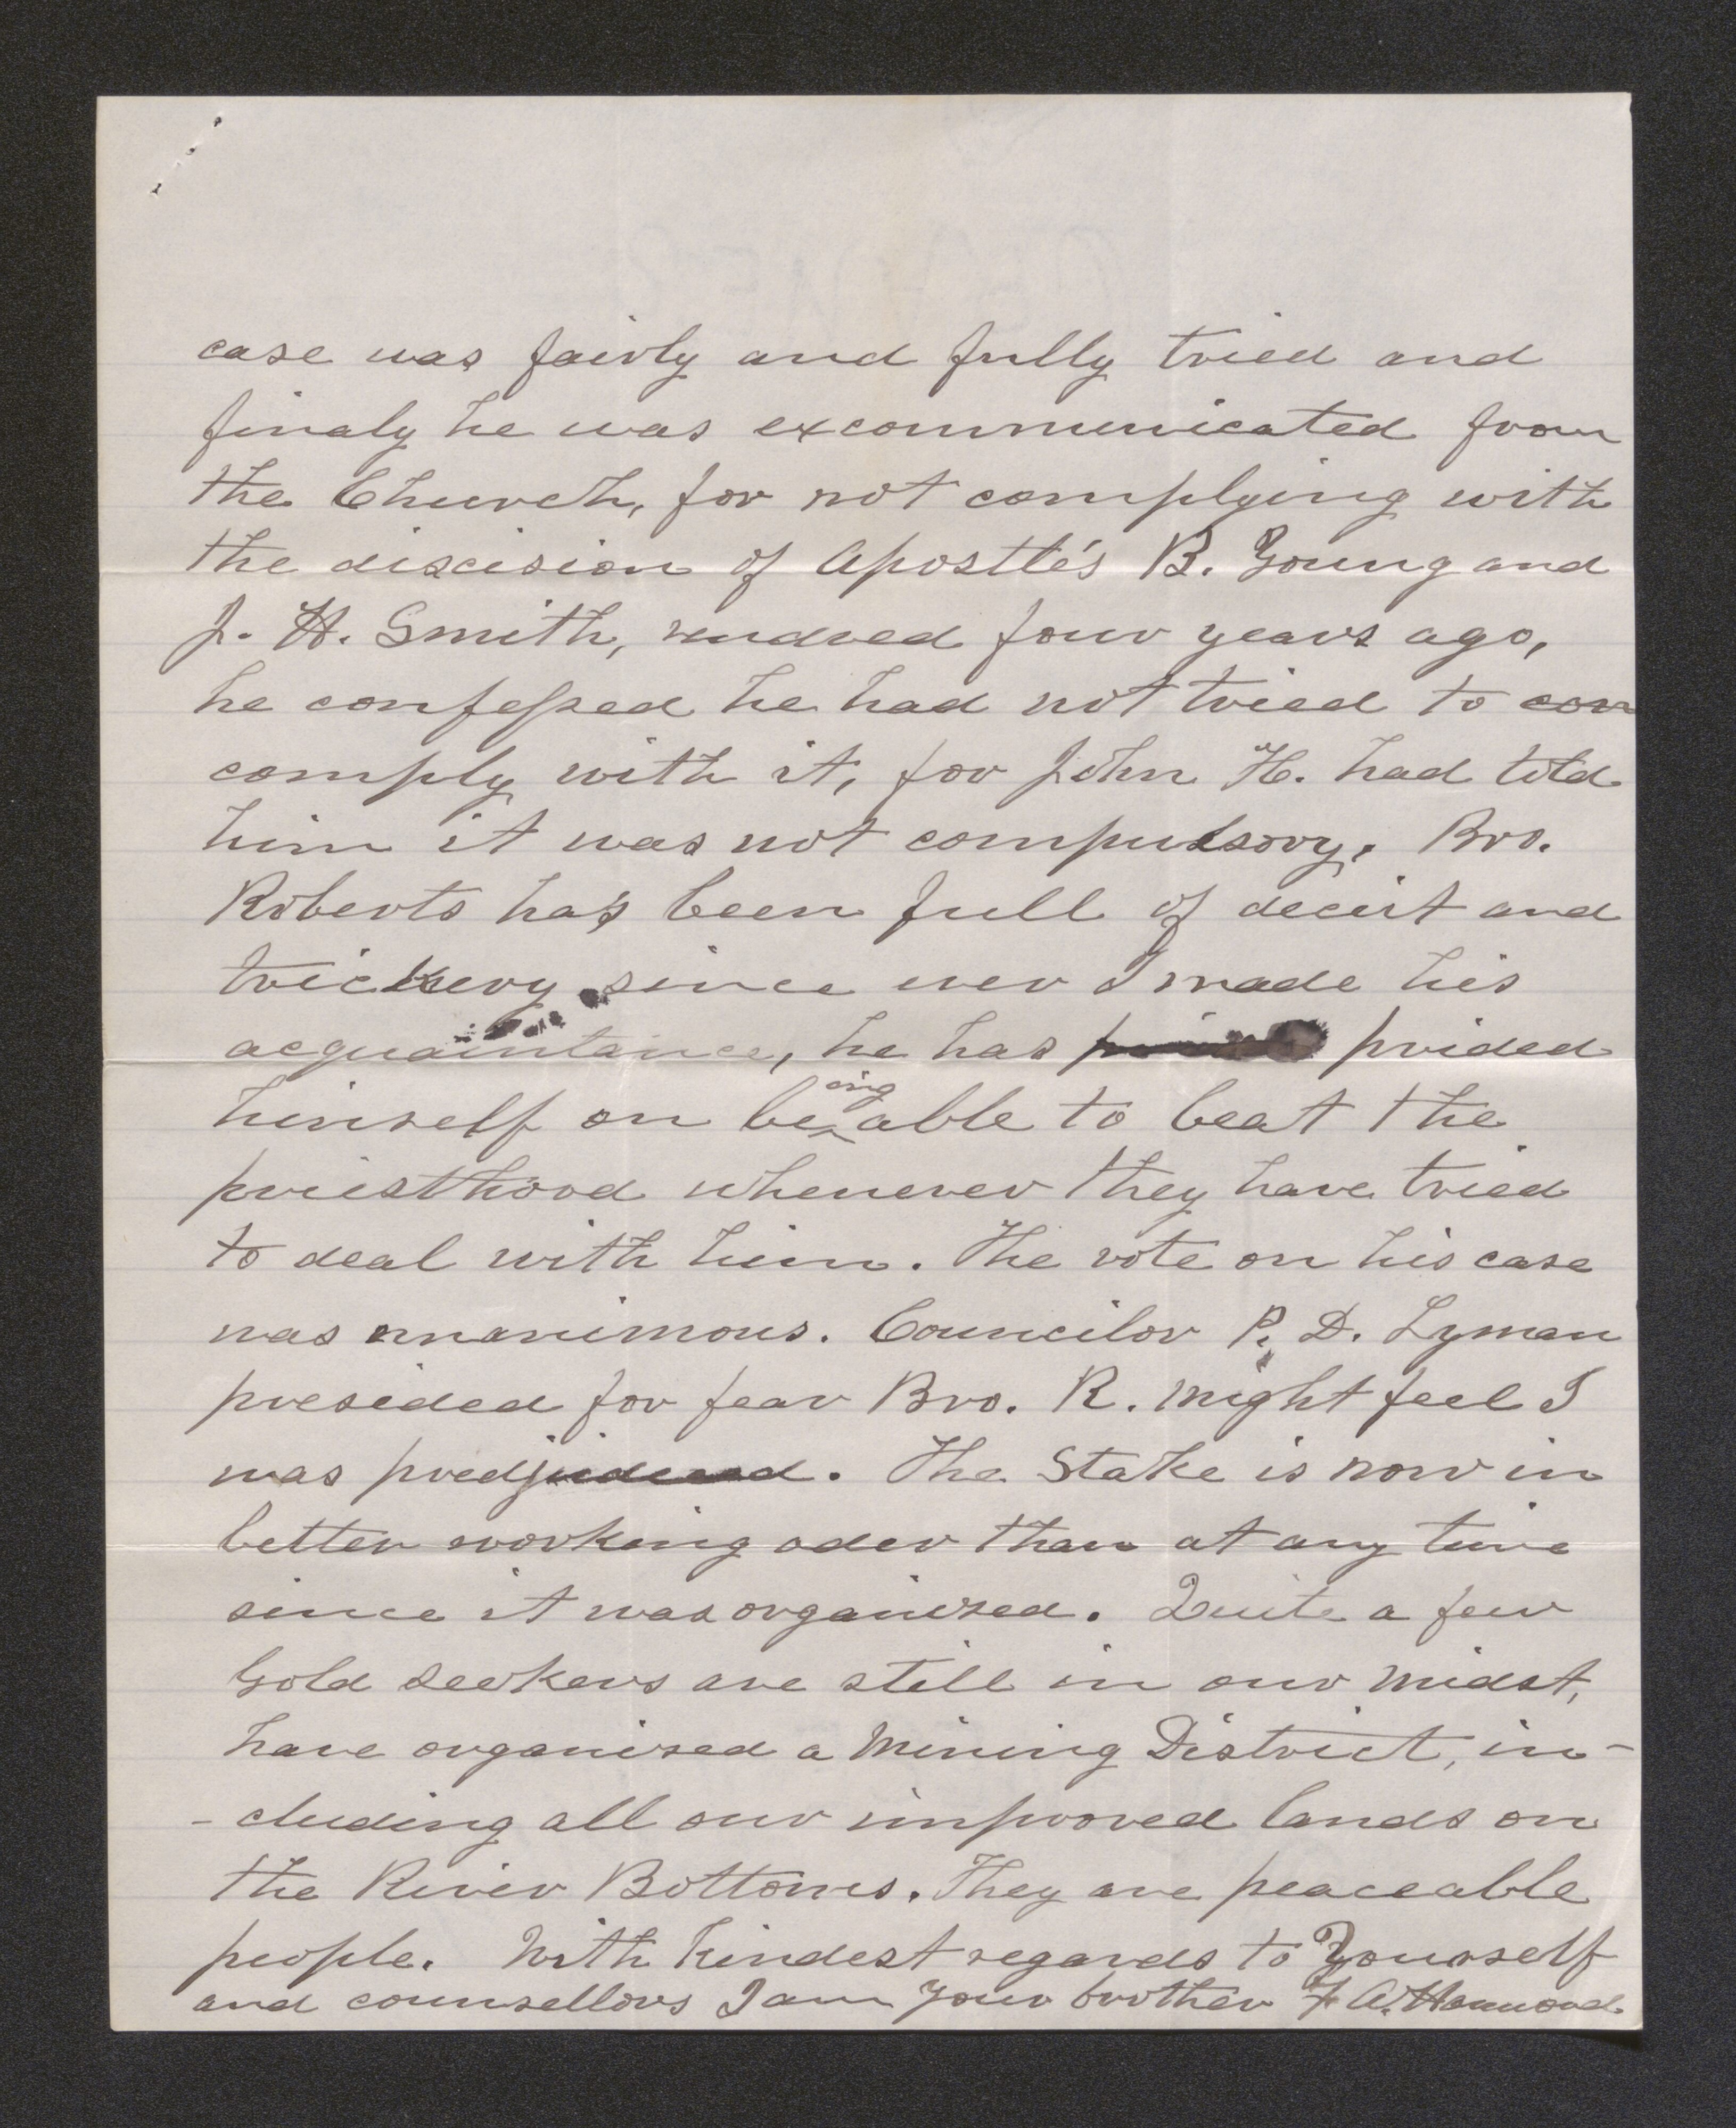 case was fairly and fully tried and
finaly he was excommunicated from
the Church, for not complying with
the discision of Apostle's B. Young and
J. H. Smith, rendred four years ago,
he confessed he had not tried to con
comply with it, for John H. had told
him it was not compulsory. Bro.
Roberts has been full of deceit and
trickery since ever I made his
acquaintance, he has prided
himself on being able to beat the
priesthood whenever they have tried
to deal with him. The vote on his case
was unanimous. Councilor P. D. Lyman
presided for fear Bro. R. might feel I
was predjudiced. The Stake is now in
better working oder than at any time
since it was organized. Quite a few
Gold seekers are still in our midst,
have organized a Mining District, in-
-cluding all our improved lands on
the River Bottoms. They are peaceable
people. With kindest regards to Yourself
and counsellors I am your brother F. A. Hammond